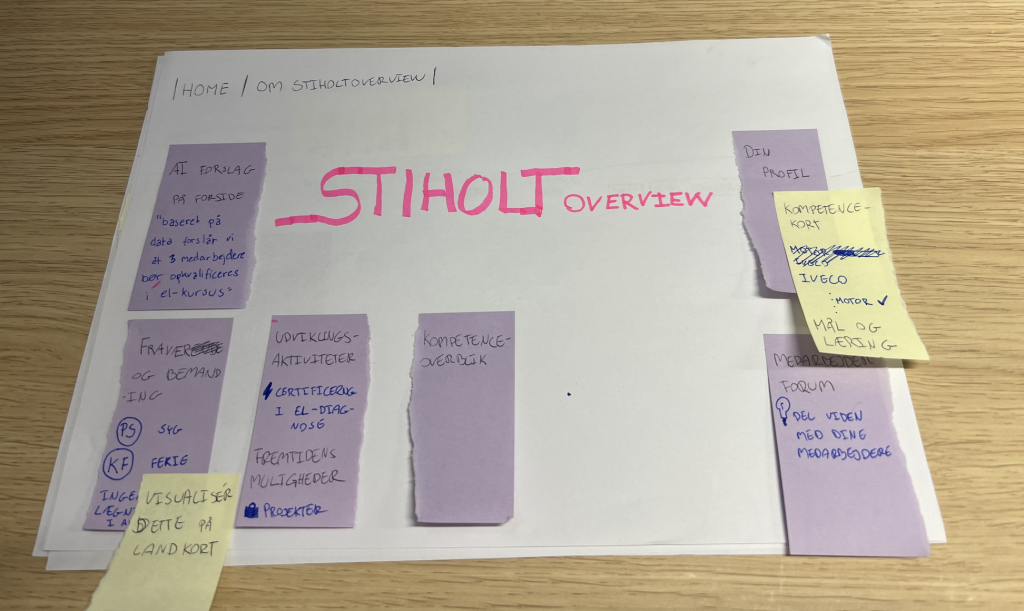 | HOME / OM STIHOLTOVERVIEW |
STIHOLT OVERVIEW
AI FORSLAG
PÅ FORSIDE
"baseret på
data forslår vi
at 3 medarbejdere
bør opkvalificeres
i el-kursus"
DIN
PROFIL
KOMPETENCE-
KORT
IVECO
MOTOR ✓
MÅL OG
LÆRING
FRAVER
OG BEMAND
-ING
PS SYG
KF FERIE
VISUALISÉR
DETTE PÅ
LANDKORT
UDVIKLINGS-
AKTIVITETER
CERTIFICERNG
I EL-DIAG-
NOSÉ
FREMTIDENS
MULIGHEDER
PROJEKTER
KOMPETENCE-
OVERBLIK
MEDARBEJDER
FORUM
DEL VIDEN
MED DINE
MEDARBEJDERE